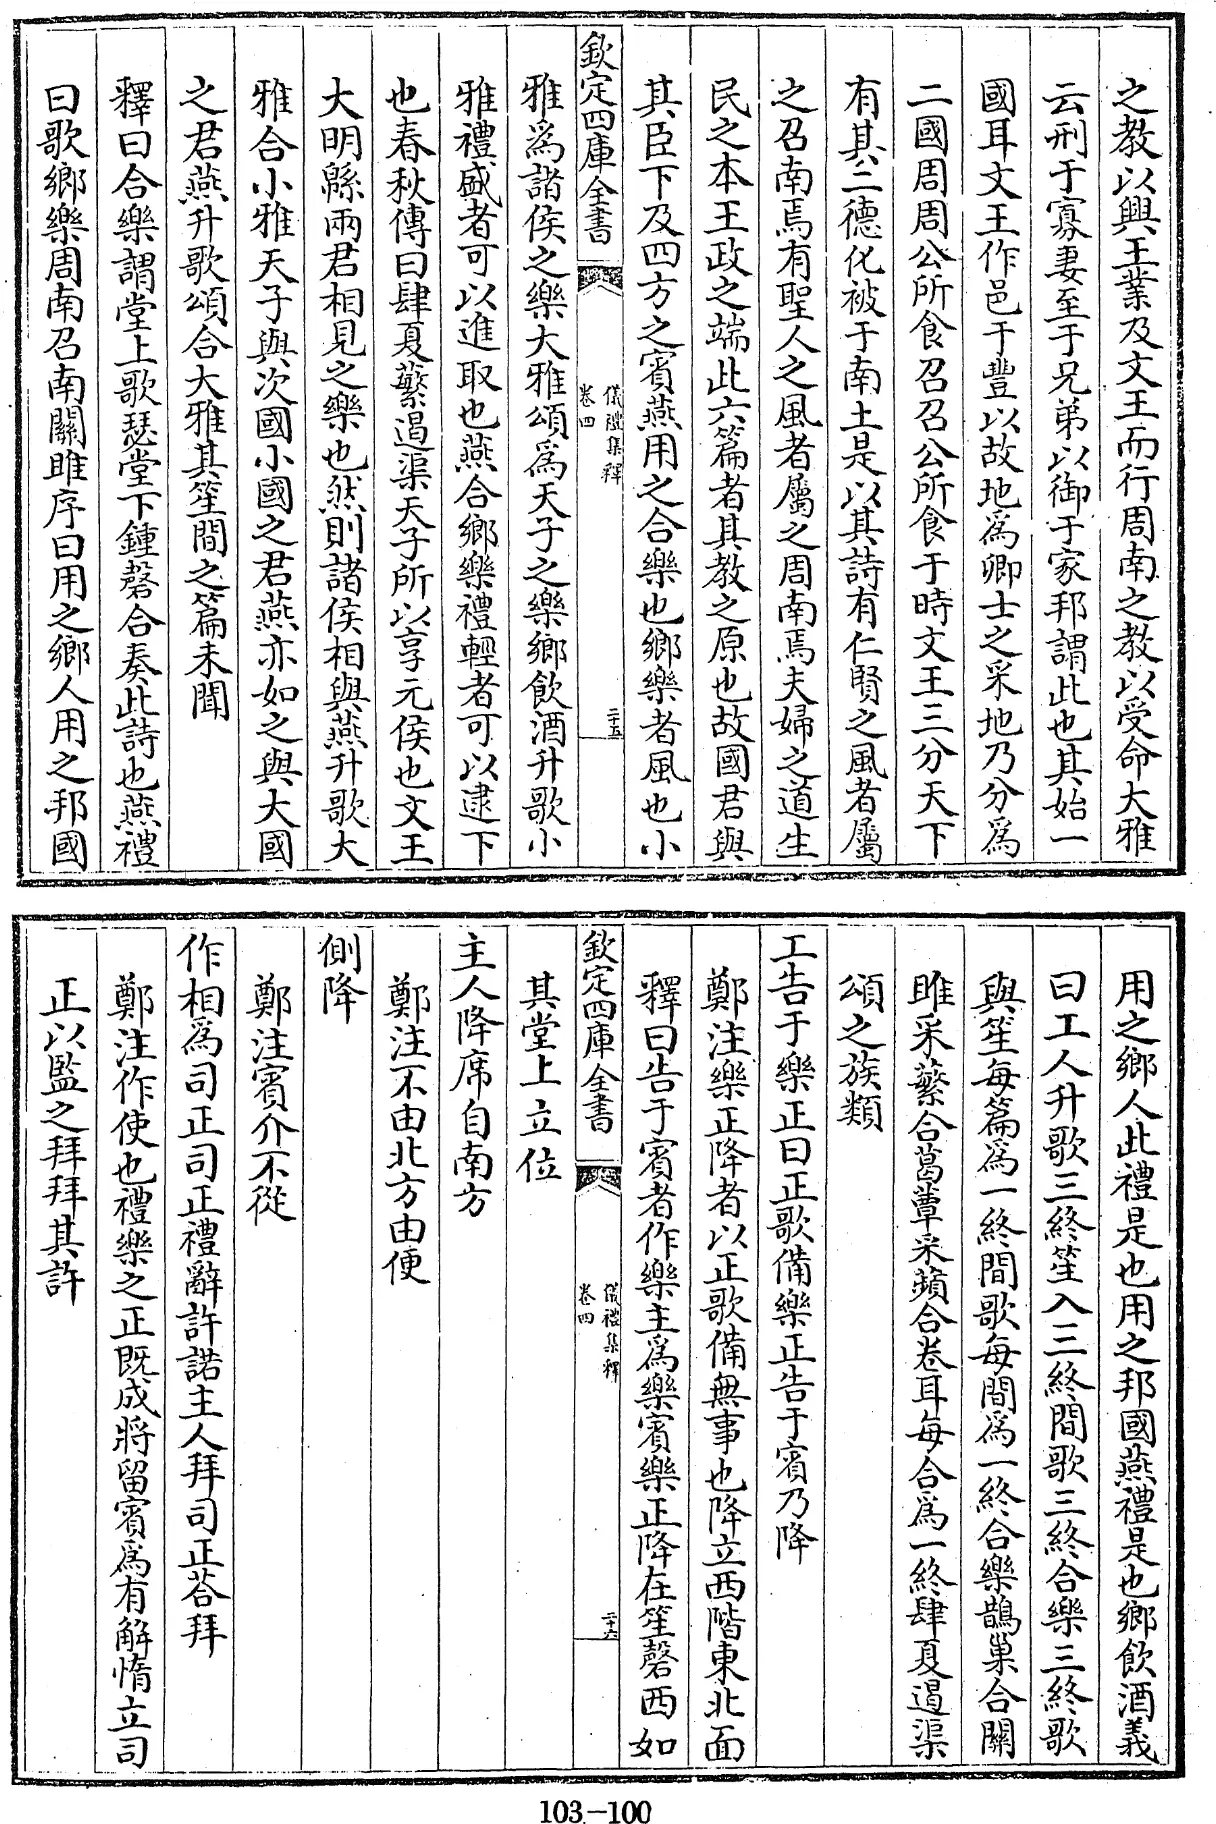 之教以興王業及文王而行周南之教以受命大雅
云刑于寡妻至于兄弟以御于家邦謂此也其始一
國耳文王作邑于豐以故地為卿士之采地乃分為
二國周周公所食召召公所食于時文王三分天下
有其二德化被于南土是以其詩有仁賢之風者屬
之召南焉有聖人之風者屬之周南焉夫婦之道生
民之本王政之端此六篇者其教之原也故國君與
其臣下及四方之賓燕用之合樂也鄉樂者風也小
欽定四庫全書
儀禮集釋
卷四
二十五
雅為諸侯之樂大雅頌為天子之樂鄉飲酒升歌小
雅禮盛者可以進取也燕合鄉樂禮輕者可以逮下
也春秋傳曰肆夏蘩遏渠天子所以享元侯也文王
大明緜兩君相見之樂也然則諸侯相與燕升歌大
雅合小雅天子與次國小國之君燕亦如之與大國
之君燕升歌頌合大雅其笙間之篇未聞
釋曰合樂謂堂上歌瑟堂下鍾磬合奏此詩也燕禮
曰歌鄉樂周南召南關雎序曰用之鄉人用之邦國
用之鄉人此禮是也用之邦國燕禮是也鄉飲酒義
曰工人升歌三終笙入三終間歌三終合樂三終歌
與笙每篇為一終間歌每間為一終合樂鵲巢合關
雎采蘩合葛蕈采蘋合卷耳每合為一終肆夏遏渠
頌之族類
工告于樂正曰正歌備樂正告于賓乃降
鄭注樂正降者以正歌備無事也降立西階東北面
釋曰告于賓者作樂主為樂賓樂正降在笙磬西如
欽定四庫全書
儀禮集釋
卷四
二十六
其堂上立位
主人降席自南方
鄭注不由北方由便
側降
鄭注賓介不從
作相為司正司正禮辭許諾主人拜司正荅拜
鄭注作使也禮樂之正既成將留賓為有解惰立司
正以監之拜拜其許
103-100